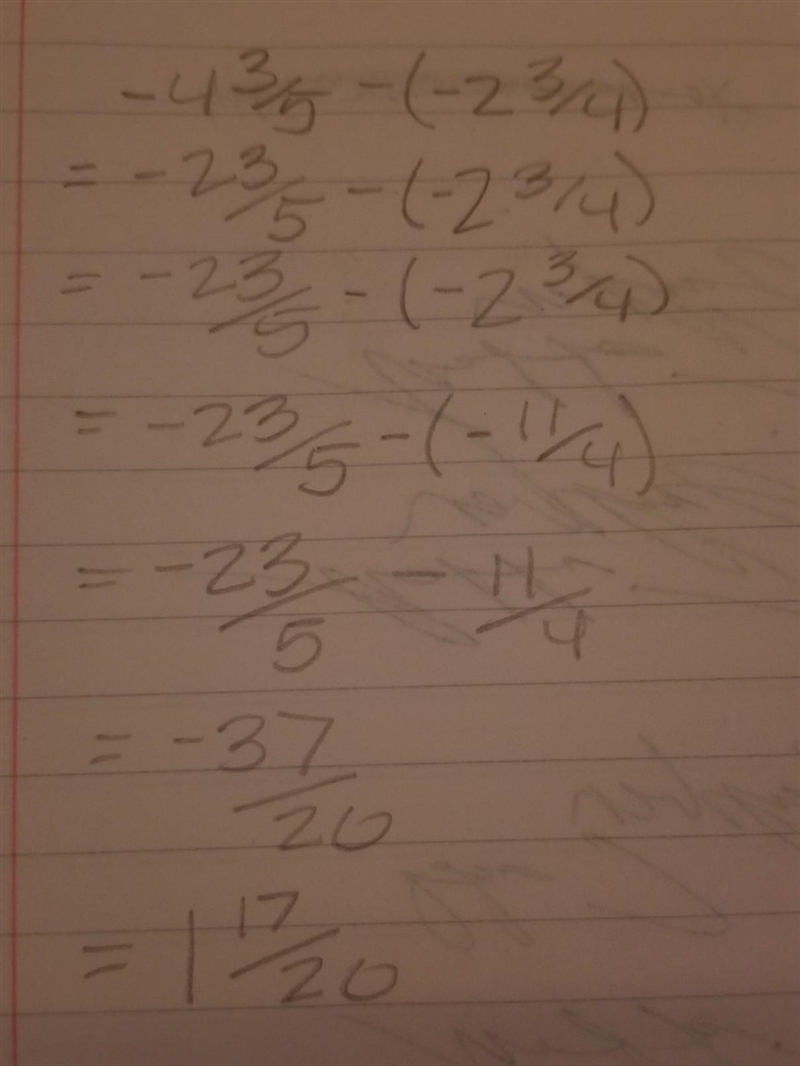 -4 3/5 - (-2 3/4)
= -23/5 - (-2 3/4)
= -23/5 - (-2 3/4)
= -23/5 - (-11/4)
= -23/5 - 11/4
= -37/20
= 1 17/20